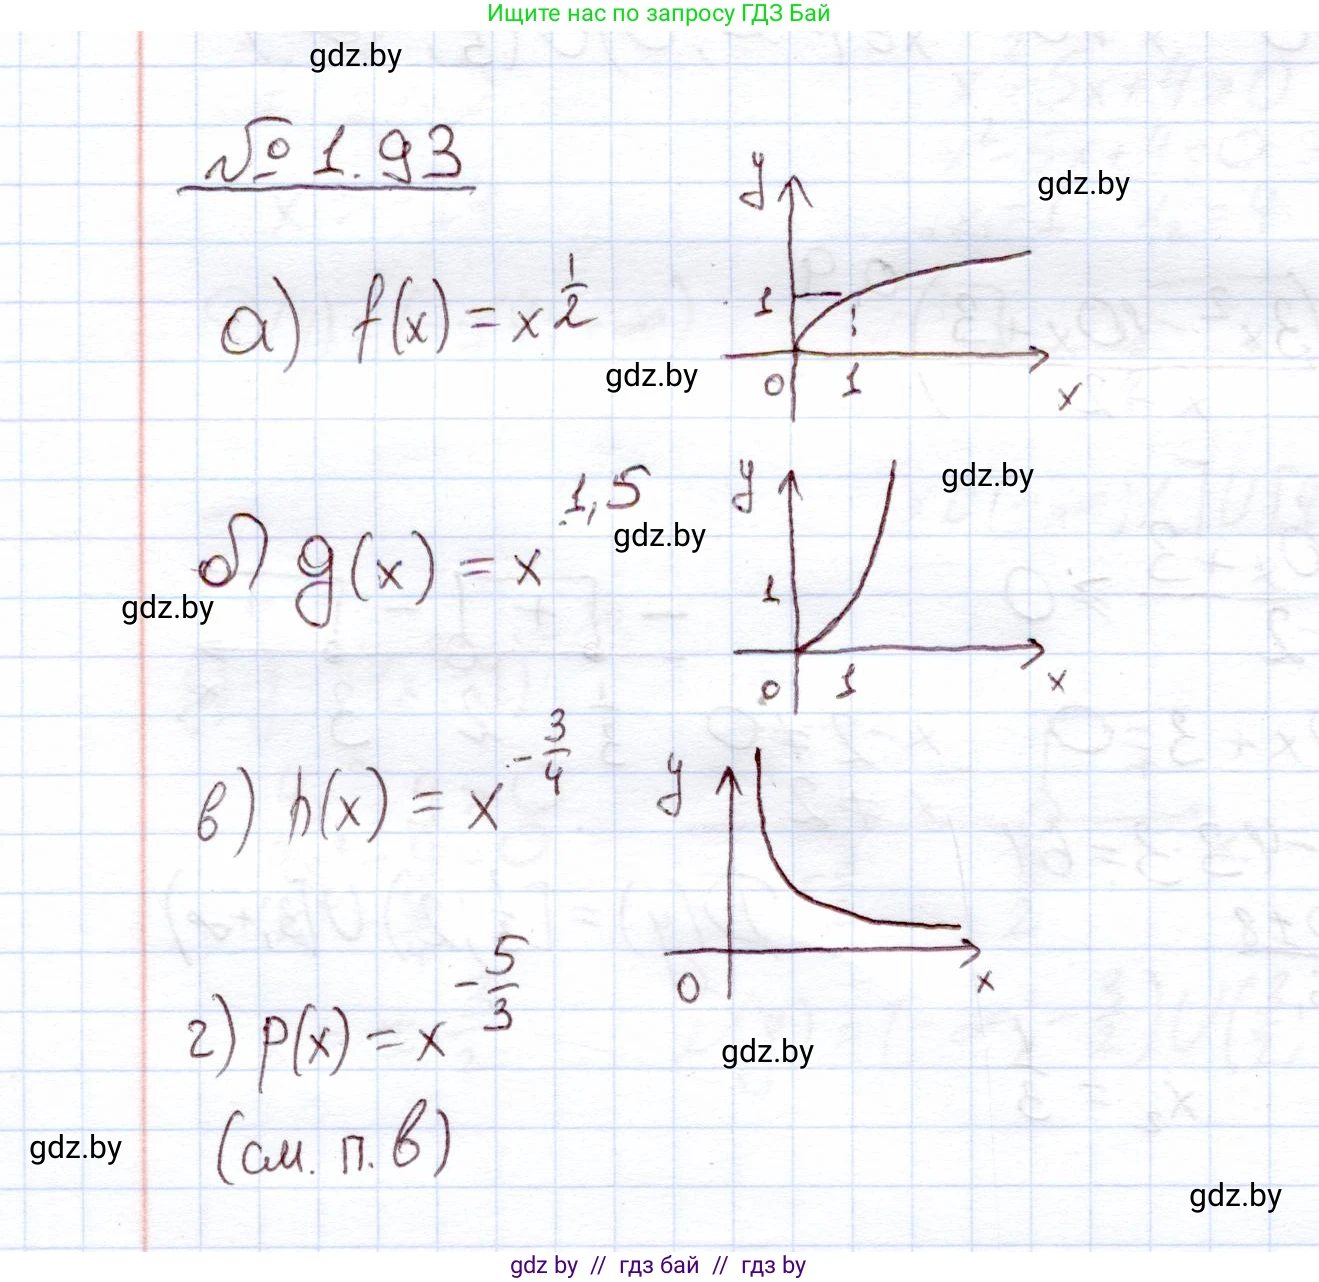 Ищите нас по запросу ГДЗ Бай
gdz.by
№ 1.93
gdz.by
а) f(x) = x^{1/2}
y
1
0 1 x
gdz.by
б) g(x) = x^{1,5}
gdz.by
gdz.by
y
1
0 1 x
gdz.by
в) h(x) = x^{-3/4}
y
0 x
г) p(x) = x^{-5/3}
gdz.by
(см. п. в)
gdz.by
gdz.by
gdz.by // гдз бай // гдз by